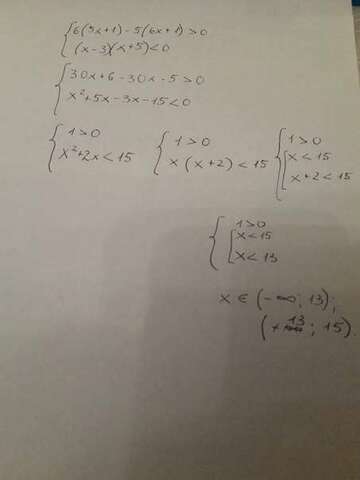 {6(5x+1)-5(6x+1)>0
(x-3)(x+5)<0
{30x+6-30x-5>0
x²+5x-3x-15<0
{1>0
x²+2x<15
{1>0
x(x+2)<15
{1>0
[x<15
x+2<15
{1>0
[x<15
x<13
x∈(-∞; 13);
(+13; 15).